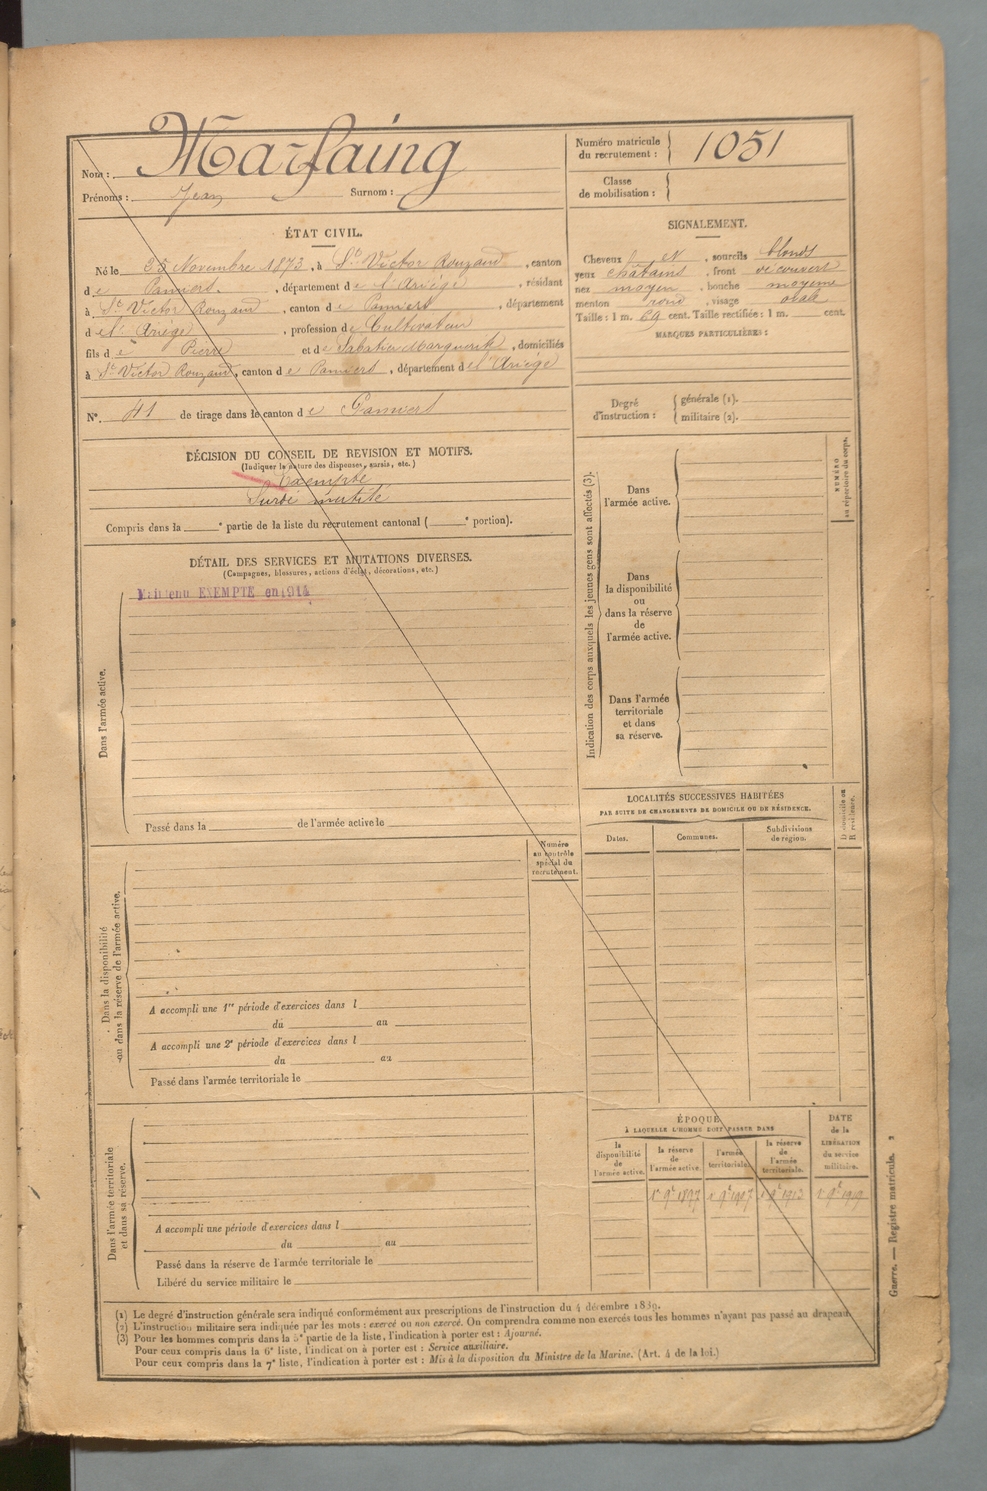 Nom : Marfaing
Prénoms : Jean Surnom :
Numéro matricule du recrutement : 1051
Classe de mobilisation :
ÉTAT CIVIL.
Né le 25 Novembre 1873, à St Victor Rouzaud, canton
de Pamiers, département de l'Ariège, résidant
à St Victor Rouzaud, canton de Pamiers, département
de l'Ariège, profession de Cultivateur
fils de Pierre et de Sabatier Marguerite, domiciliés
à St Victor Rouzaud, canton de Pamiers, département de l'Ariège
N° 41 de tirage dans le canton de Pamiers
SIGNALEMENT.
Cheveux et, sourcils blonds
yeux chatains, front découvert
nez moyen, bouche moyenne
menton rond, visage ovale
Taille : 1 m. 69 cent. Taille rectifiée : 1 m. cent.
MARQUES PARTICULIÈRES :
Degré d'instruction : générale (1).
militaire (2).
DÉCISION DU CONSEIL DE REVISION ET MOTIFS.
(Indiquer la nature des dispenses, sursis, etc.)
Exempté
Surdi mutité
Compris dans la e partie de la liste du recrutement cantonal ( e portion).
DÉTAIL DES SERVICES ET MUTATIONS DIVERSES.
(Campagnes, blessures, actions d'éclat, décorations, etc.)
Maintenu EXEMPTÉ en 1914
Dans l'armée active.
Passé dans la de l'armée active le
Indication des corps auxquels les jeunes gens sont affectés (3).
NUMÉRO au répertoire du corps.
Dans
l'armée active.
Dans
la disponibilité
ou
dans la réserve
de
l'armée active.
Dans l'armée
territoriale
et dans
sa réserve.
LOCALITÉS SUCCESSIVES HABITÉES
PAR SUITE DE CHANGEMENTS DE DOMICILE OU DE RÉSIDENCE.
Dates. Communes. Subdivisions de région.
D domicile ou R résidence.
Numéro
au contrôle
spécial du
recrutement.
Dans la disponibilité
ou dans la réserve de l'armée active.
A accompli une 1re période d'exercices dans l
du au
A accompli une 2e période d'exercices dans l
du au
Passé dans l'armée territoriale le
Dans l'armée territoriale
et dans sa réserve.
A accompli une période d'exercices dans l
du au
Passé dans la réserve de l'armée territoriale le
Libéré du service militaire le
ÉPOQUE
À LAQUELLE L'HOMME DOIT PASSER DANS
la disponibilité de l'armée active.
la réserve de l'armée active.
l'armée territoriale.
la réserve de l'armée territoriale.
DATE de la LIBÉRATION du service militaire.
1er 9e 1897 1 9e 1907 1 9e 1913 1er 9e 1919
Guerre. — Registre matricule.
(1) Le degré d'instruction générale sera indiqué conformément aux prescriptions de l'instruction du 4 décembre 1889.
(2) L'instruction militaire sera indiquée par les mots : exercé ou non exercé. On comprendra comme non exercés tous les hommes n'ayant pas passé au drapeau.
(3) Pour les hommes compris dans la 5e partie de la liste, l'indication à porter est : Ajourné.
Pour ceux compris dans la 6e liste, l'indication à porter est : Service auxiliaire.
Pour ceux compris dans la 7e liste, l'indication à porter est : Mis à la disposition du Ministre de la Marine. (Art. 4 de la loi.)